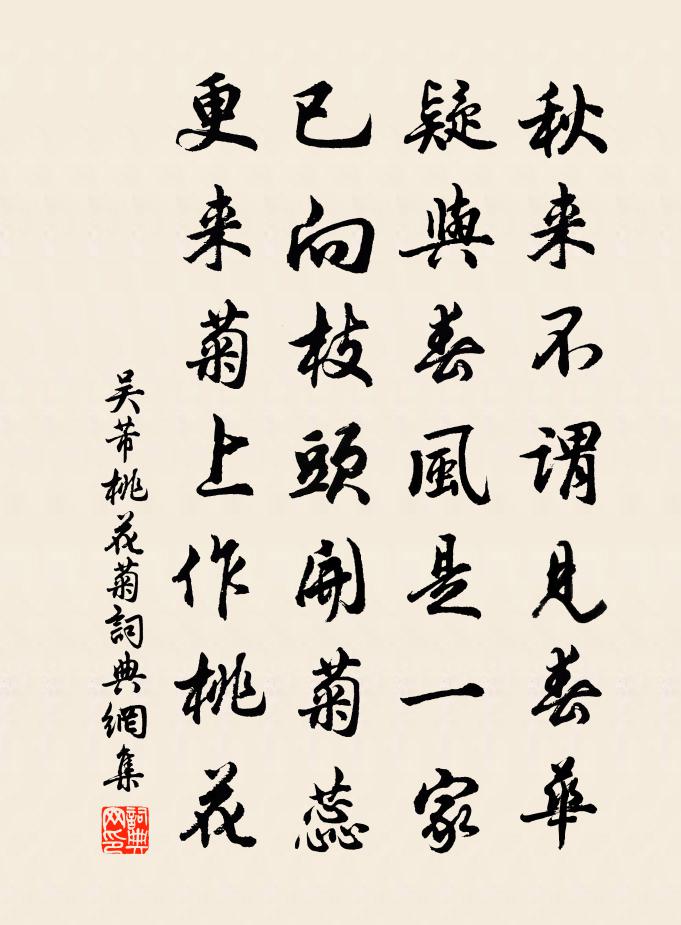 秋来不謂見春華
疑與春風是一家
已向枝頭開菊蕊
更来菊上作桃花
吴芾桃花菊詞典網集
詞典網印